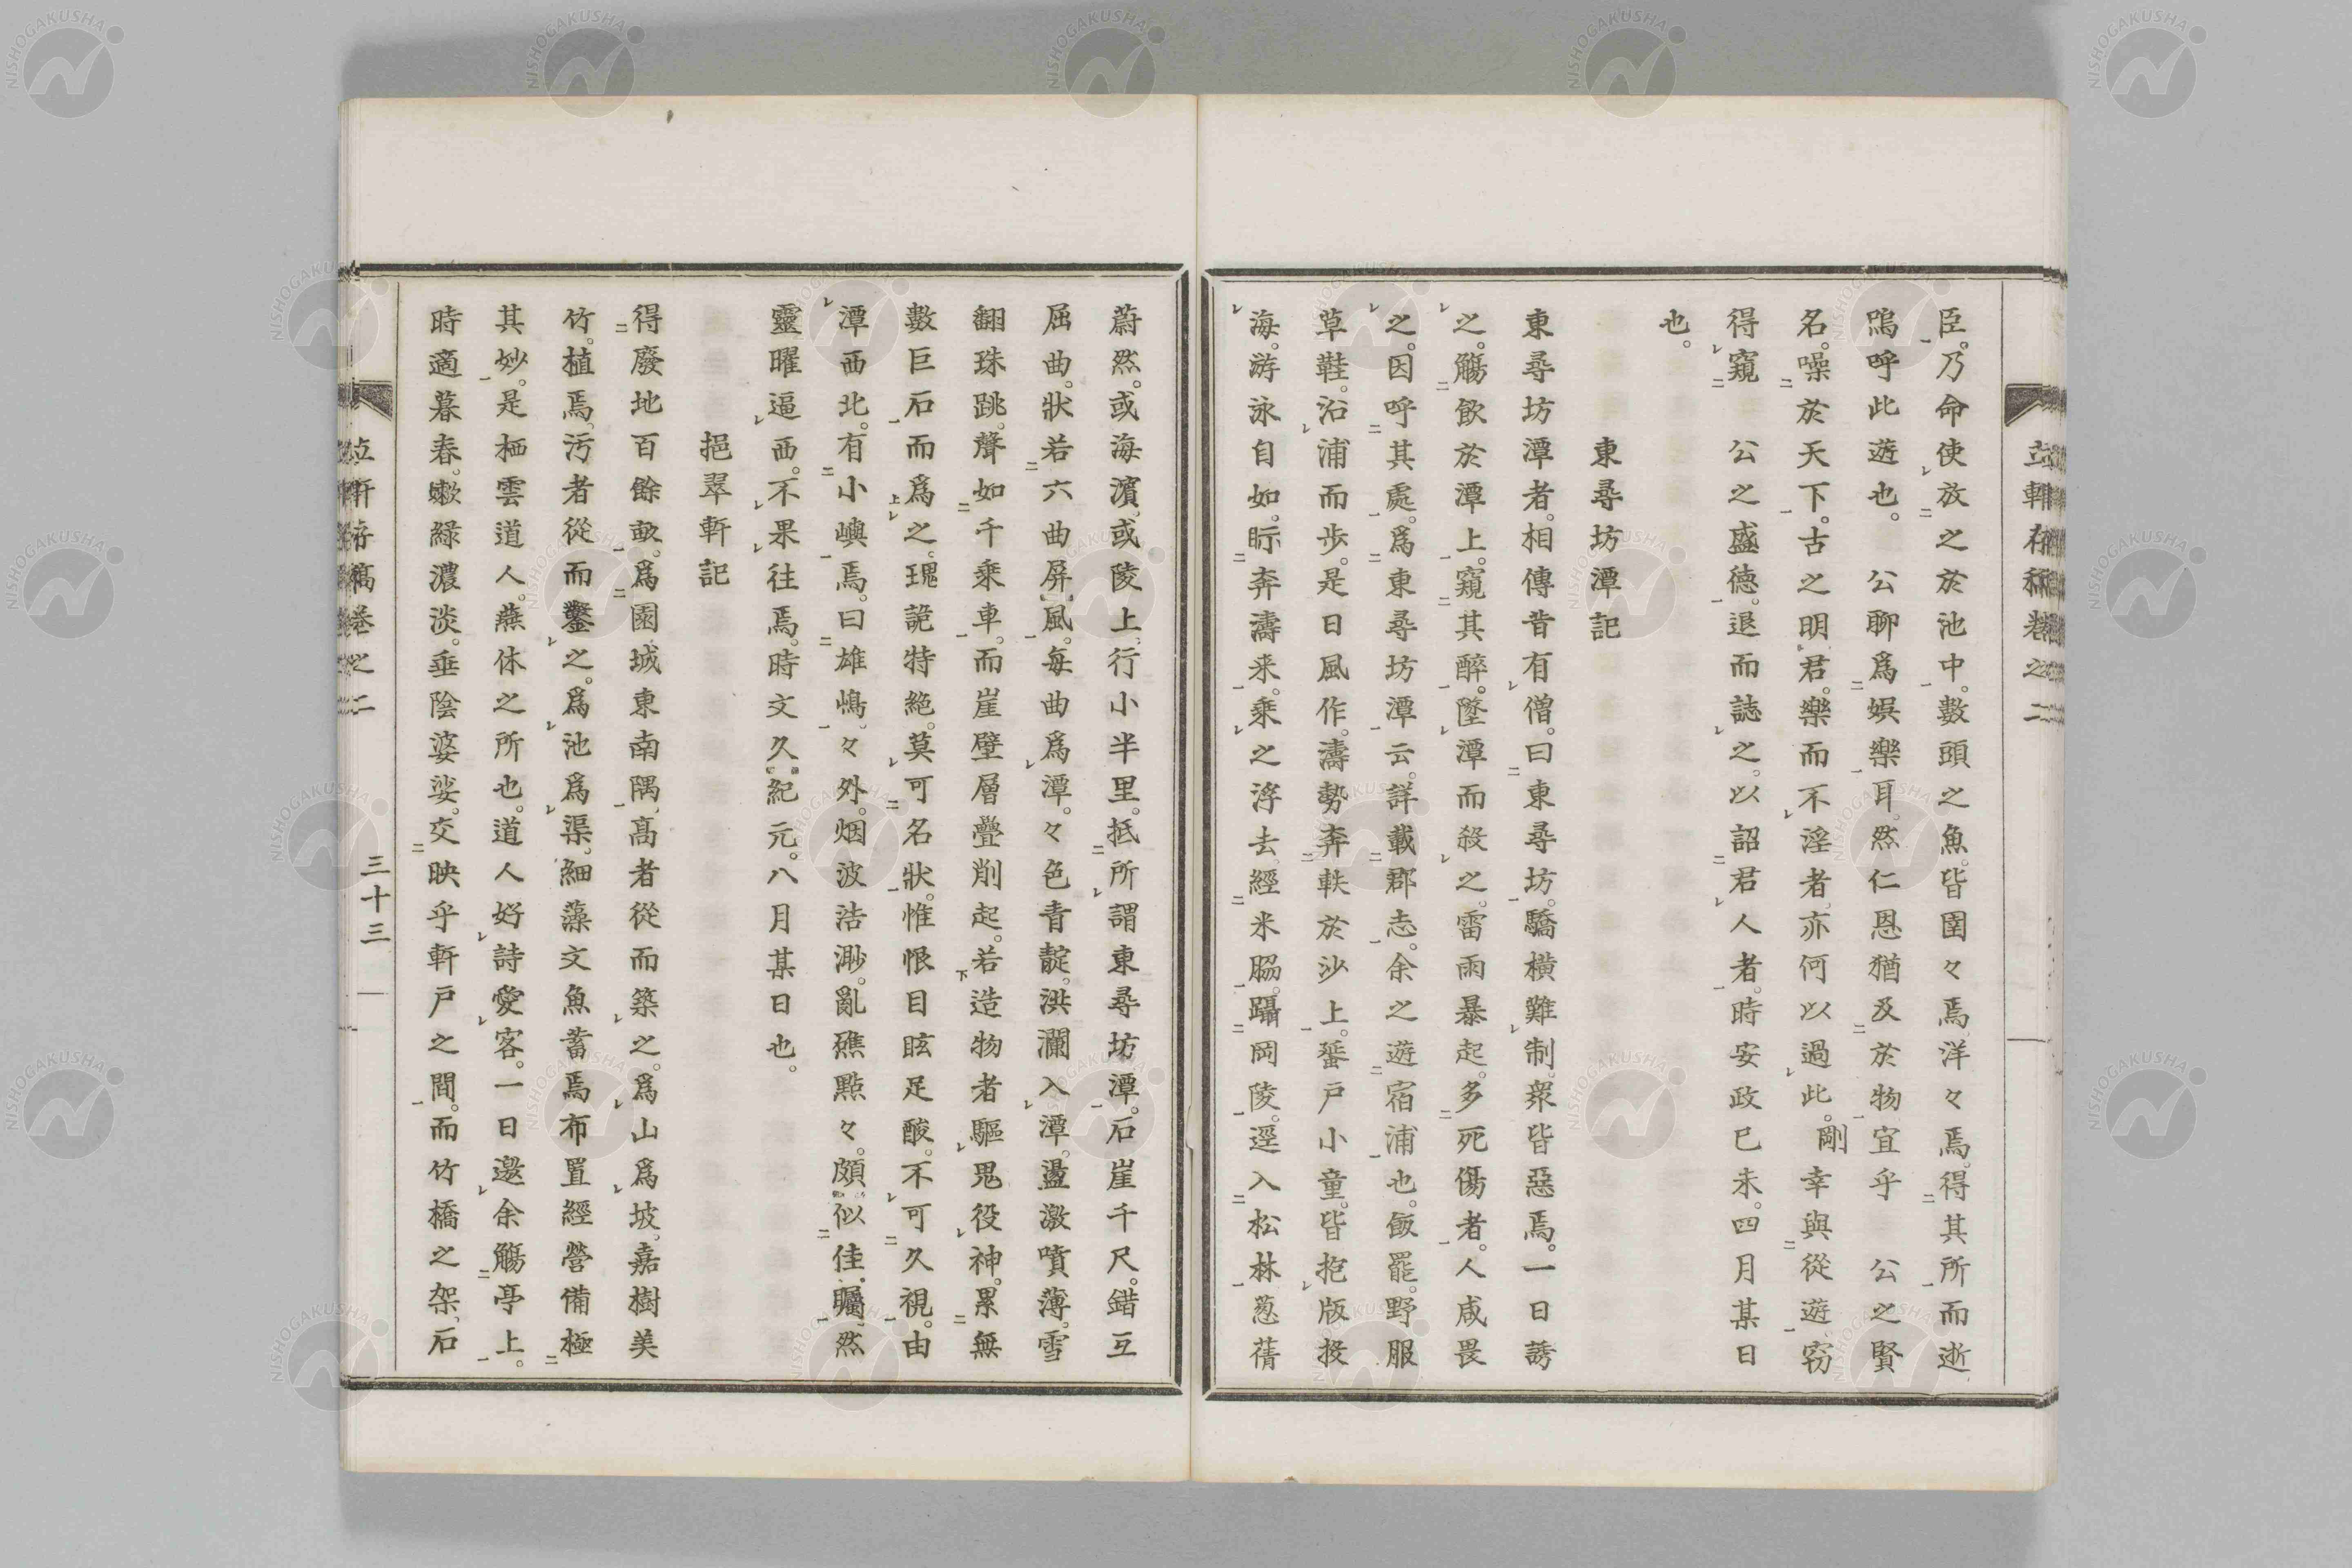 立軒存稿卷之二
臣。乃命使放之於池中。數頭之魚。皆圉々焉。洋々焉。得其所而逝。
嗚呼此遊也。　公聊爲娯樂耳。然仁恩猶及於物。宜乎　公之賢
名。噪於天下。古之明君。樂而不淫者。亦何以過此。剛幸與從遊。窃
得窺　公之盛徳。退而誌之。以詔君人者。時安政已未。四月某日
也。
東尋坊潭記
東尋坊潭者。相傳昔有僧。曰東尋坊。驕横難制。衆皆惡焉。一日誘
之。觴飲於潭上。窺其醉。墜潭而殺之。雷雨暴起。多死傷者。人咸畏
之。因呼其處。爲東尋坊潭云。詳載郡志。余之遊宿浦也。飯罷。野服
草鞋。沿浦而歩。是日風作。濤勢奔軼於沙上。蜑戸小童。皆抱版投
海。游泳自如。眎奔濤来。乘之浮去。經米脇。躡岡陵。逕入松林。葱蒨
蔚然。或海濱。或陵上。行小半里。抵所謂東尋坊潭。石崖千尺。錯互
屈曲。狀若六曲屏風。毎曲爲潭。々色青靛。洪瀾入潭。盪激噴薄。雪
翻珠跳。聲如千乘車。而崖壁層疊削起。若造物者驅鬼役神。累無
數巨石而爲之。瑰詭特絶。莫可名狀。惟恨目眩足酸。不可久視。由
潭西北。有小嶼焉。曰雄嶋。々外。烟波浩渺。亂礁點々。頗似佳。矚然
靈曜逼西。不果往焉。時文久紀元。八月某日也。
挹翠軒記
得廢地百餘畝。爲園城東南隅。髙者從而築之。爲山爲坡。嘉樹美
竹。植焉。汚者從而鑿之。爲池爲渠。細藻文魚蓄焉布置經營備極
其妙。是栖雲道人。燕休之所也。道人好詩愛客。一日邀余觴亭上。
時適暮春。嫩緑濃淡。垂陰婆娑。交映乎軒戸之間。而竹橋之架。石
立軒存稿卷之二
三十三